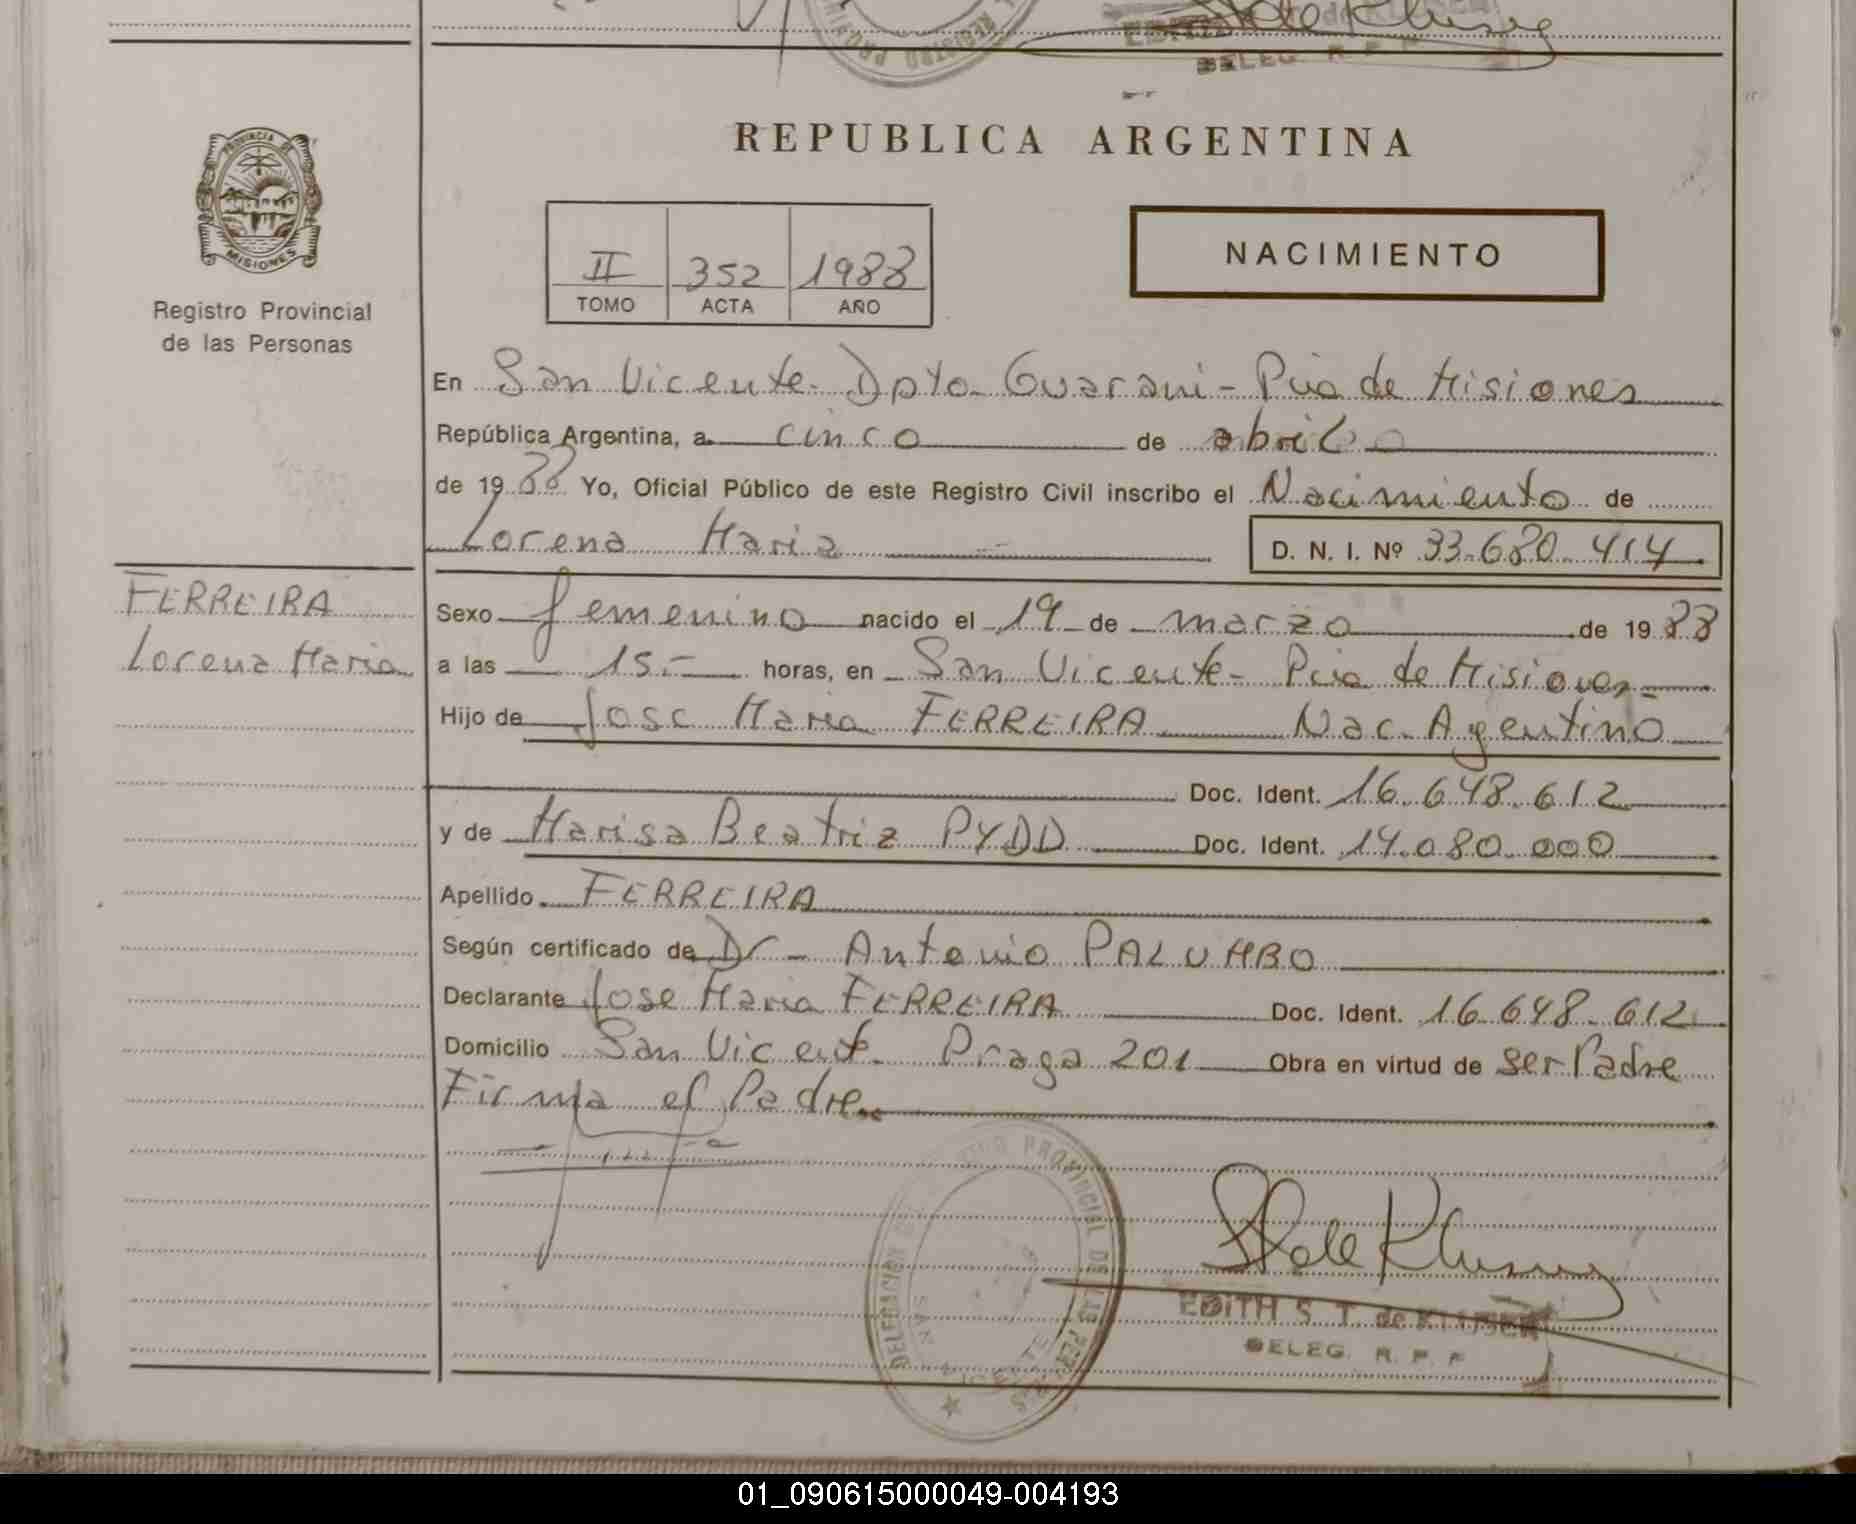 REPUBLICA ARGENTINA
PROVINCIA DE
MISIONES
Registro Provincial
de las Personas
II 352 1988
TOMO ACTA AÑO
NACIMIENTO
En San Vicente. Dpto. Guarani - Pcia de Misiones
República Argentina, a cinco de abril
de 1988 Yo, Oficial Público de este Registro Civil inscribo el Nacimiento de
Lorena Maria D. N. I. Nº 33.680.414
FERREIRA
Lorena Maria
Sexo femenino nacido el 19 de marzo de 1988
a las 15.- horas, en San Vicente - Pcia de Misiones
Hijo de Jose Maria FERREIRA Nac. Agentino
Doc. Ident. 16.648.612
y de Marisa Beatriz PYDD Doc. Ident. 14.080.000
Apellido FERREIRA
Según certificado de Dr - Antonio PALUMBO
Declarante Jose Maria FERREIRA Doc. Ident. 16.648.612
Domicilio San Vicente. Praga 201 Obra en virtud de ser Padre
Firma el Padre
EDITH S. T. de KLUSEN
DELEG. R. P. P
01_090615000049-004193